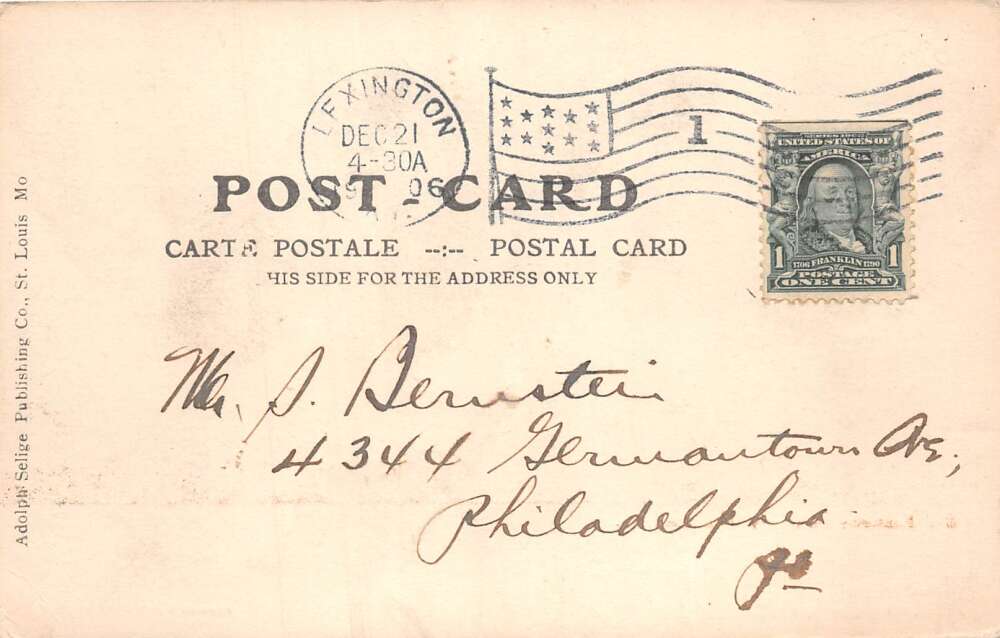 LEXINGTON
DEC 21
4-30A
06
1
UNITED STATES OF
AMERICA
1 1706 FRANKLIN 1790 1
POSTAGE
ONE CENT
POST CARD
CARTE POSTALE --:-- POSTAL CARD
HIS SIDE FOR THE ADDRESS ONLY
Mr. S. Bernstein
4344 Germantown Ave.,
Philadelphia
Pa
Adolph Selige Publishing Co., St. Louis Mo